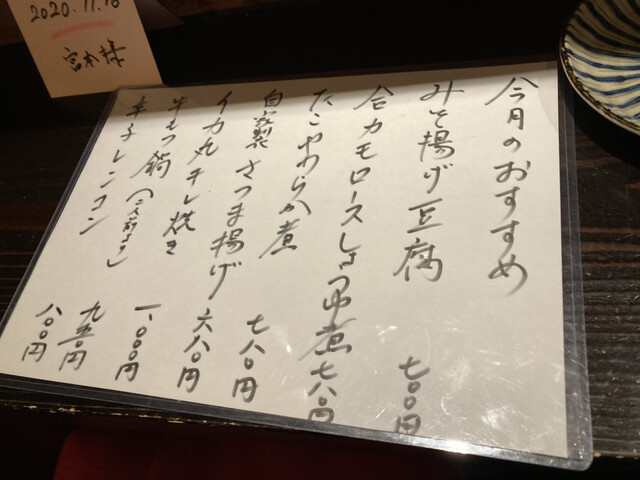 今月のおすすめ
みそ揚げ豆腐 七〇〇円
合カモロースしょうゆ煮 七八〇円
たこやわらか煮 七八〇円
自家製さつま揚げ 六八〇円
イカ丸干し焼き 一、〇〇〇円
牛もつ鍋(二人前より) 九五〇円
辛子レンコン 八〇〇円
様